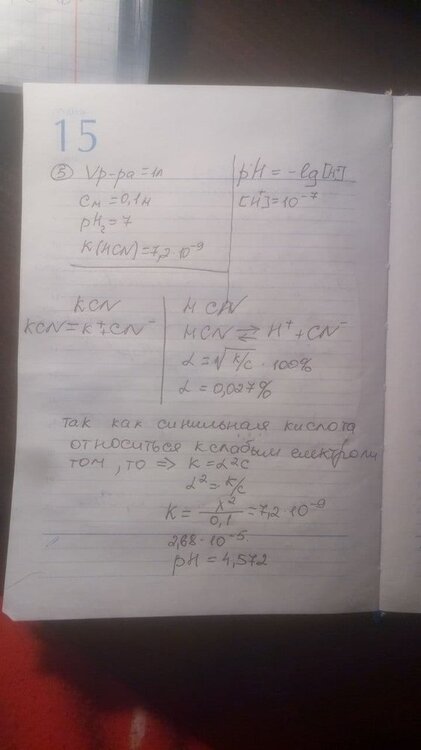 15
⑤ Vр-ра = 1л
pH = -lg[H⁺]
См = 0,1м
[H⁺] = 10⁻⁷
pH₂ = 7
K(HCN) = 7,2·10⁻⁹
KCN
HCN
KCN = K⁺ + CN⁻
HCN ⇄ H⁺ + CN⁻
α = √K/c · 100%
α = 0,027%
так как синильная кислота
относиться к слабым електроли
том, то => K = α²c
α² = K/c
K = x²/0,1 = 7,2·10⁻⁹
2,68·10⁻⁵
pH = 4,572